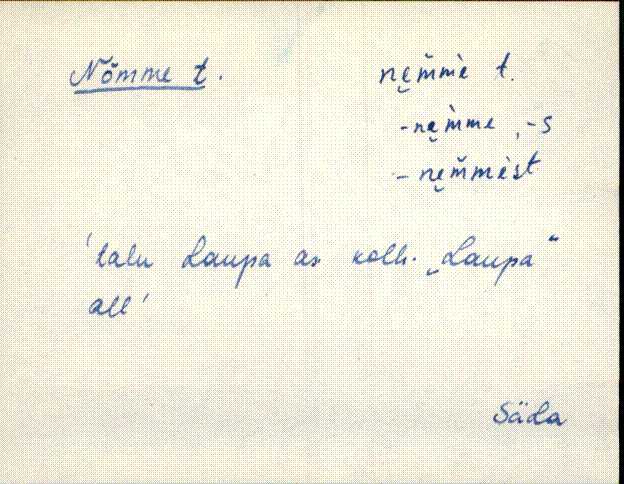 Nõmme t. nę̆m̆mè t.
-nęm̀me, -s
- nęm̆mèst
'talu Laupa as kolh. „Laupa"
all'
Säda